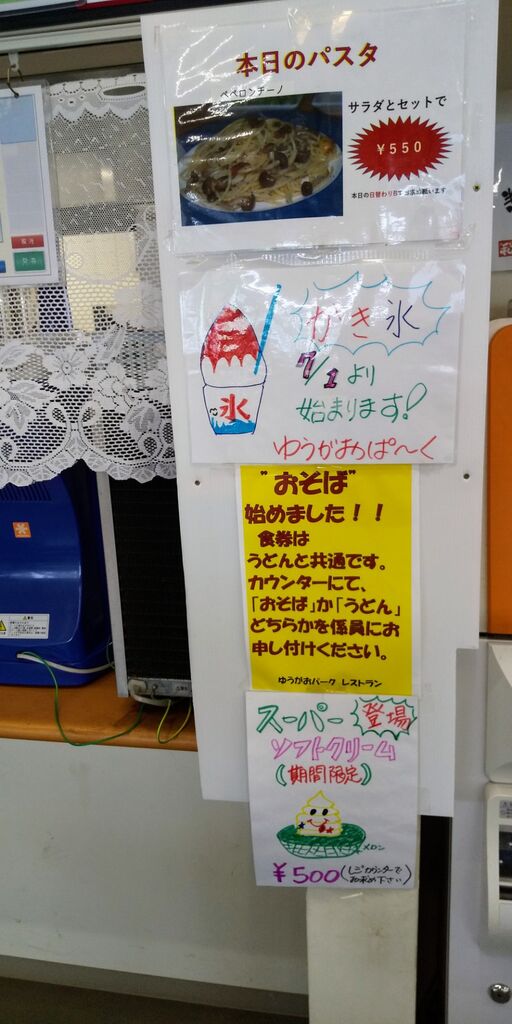 本日のパスタ
ペペロンチーノ
サラダとセットで
￥550
本日の日替わり
かき氷
7/1より
始まります!
氷
ゆうがおぱ～く
"おそば"
始めました！！
食券は
うどんと共通です。
カウンターにて、
「おそば」か「うどん」
どちらかを係員にお
申し付けください。
ゆうがおパーク レストラン
スーパー
登場
ソフトクリーム
(期間限定)
メロン
￥500(レジカウンターで
お求め下さい)